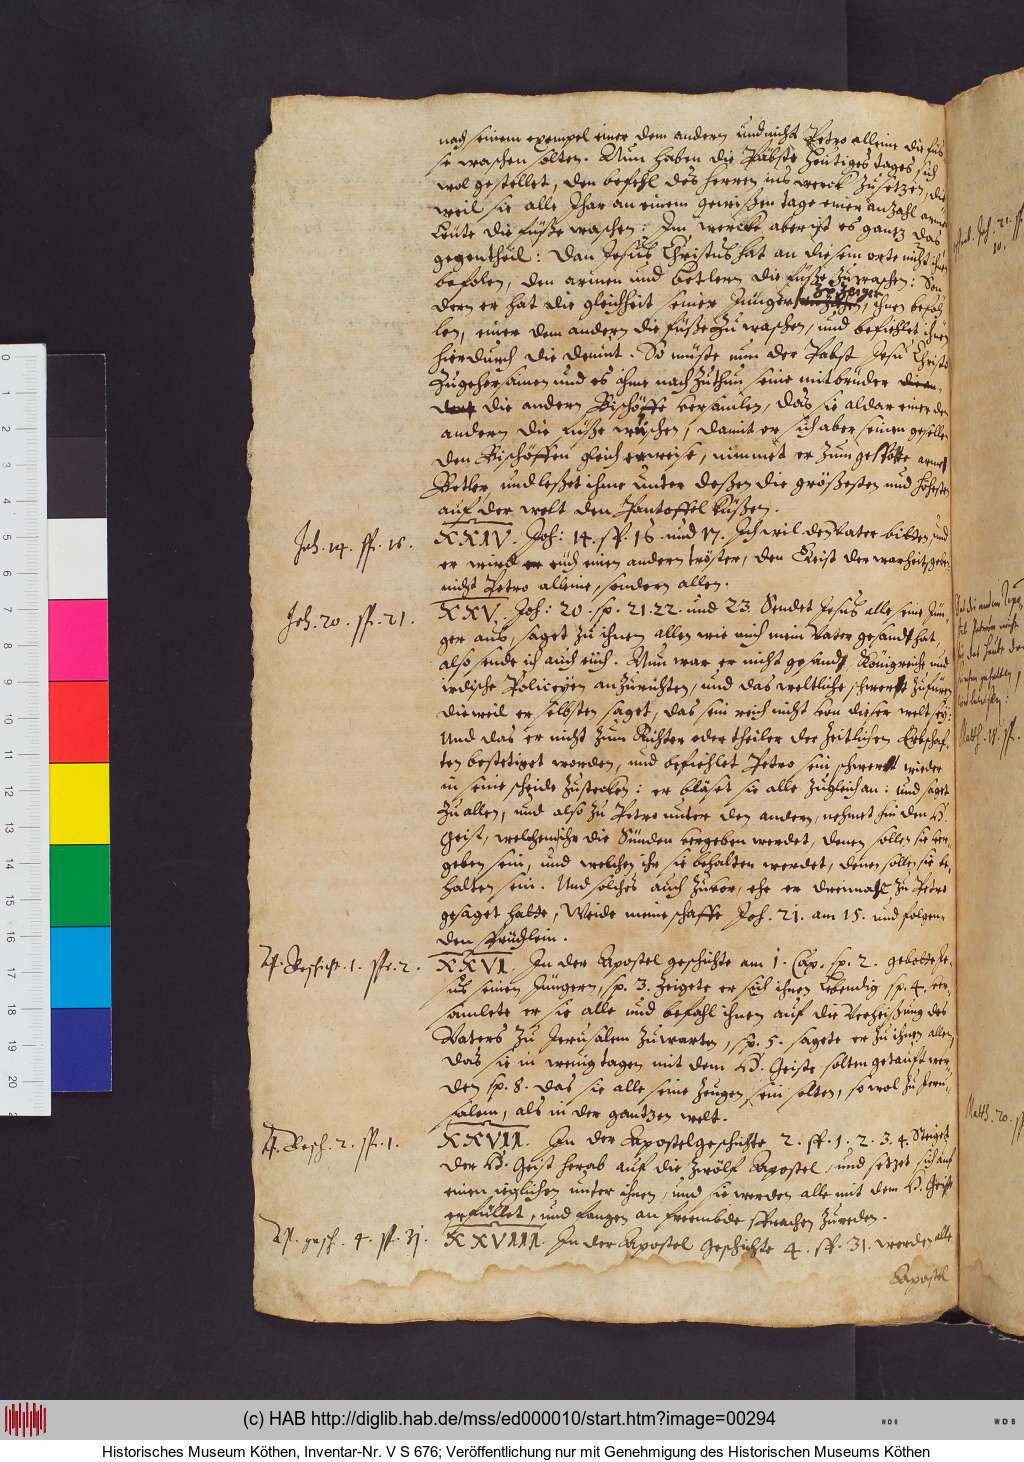 nach seinem exempel einer dem andern und nicht Petro alleine die füs
se waschen solten. Nun haben die Päbste heutiges tages sich
wol gestellet, den befehl des herren ins werck zusetzen, die
weil sie alle Jhar an einem gewißen tage einer anzahl arme
Leute die füße waschen: Im wercke aber ist es gantz das
gegentheil: Dan Jesus Christus hat an diesem orte nicht ihnen
befolen, den armen und betlern die füße zuwaschen: Son
dern er hat die gleichheit seiner Jünger zu zeigen, ihnen befoh
len, einer dem andern die füße zu waschen, und befiehlet ihnen
hierdurch die demut. So müste nun der Pabst Jesu Christo
zugehorsamen und es ihme nach zuthun seine mitbrüder
die andern Bischöffe versamlen, das sie aldar einer den
andern die füße wuschen, damit er sich aber seinen gesellen
den Bischöffen gleich erweise, nimmet er zum gespötte arme
Betler, und leßet ihme unter deßen die größesten und höhesten
auf der welt den Pantoffel küßen.
Joh. 14. sp. 16.
XXIV. Joh: 14. sp. 16 und 17. Ich wil den Vater bitten und
er wird euch einen andern tröster, den Geist der warheit, geben
nicht Petro alleine, sondern allen.
Joh. 20. sp. 21.
XXV. Joh: 20. sp. 21. 22. und 23. Sendet Jesus alle seine Jün
ger aus, saget zu ihnen allen wie mich mein Vater gesandt hat,
also sende ich auch euch. Nun war er nicht gesandt Königreiche und
irdische Policeyen anzurichten, und das weltliche schwert zufüren
dieweil er selbsten saget, das sein reich nicht von dieser welt sey:
Und das er nicht zum Richter oder theiler der zeitlichen Erbschaf,
ten bestetiget worden, und befiehlet Petro sein schwert wieder
in seine scheide zustecken: er bläset sie alle zugleich an: und saget
zu allen, und also zu Petro unter den andern, nehmet hin den H.
Geist, welchen ihr die Sünden vergeben werdet, denen sollen sie ver,
geben sein, und welchen ihr sie behalten werdet, denen sollen sie be
halten sein. Und solches auch zuvor, ehe er dreimahl zu Petro
gesaget hatte, Weide meine schaffe Joh. 21. am 15. und folgen
den sprüchlein.
Ap. Geschicht. 1. sp. 2.
XXVI. In der Apostel geschichte am 1. Cap. sp. 2. gebotte Je
sus seinen Jüngern, sp. 3. zeigete er sich ihnen Lebendig sp. 4. ver
samlete er sie alle und befahl ihnen auf die Verheißung des
Vaters zu Jerusalem zuwarten, sp. 5. sagete er zu ihnen allen,
das sie in wenig tagen mit dem H. Geiste solten getauft wer
den sp. 8. das sie alle seine zeugen sein solten, so wol zu Jeru
salem, als in der gantzen welt.
Ap. Gesch. 2. sp. 1.
XXVII. In der Apostelgeschichte 2. sp. 1. 2. 3. 4. Steiget
der H. Geist herab auf die zwölf Apostel, und setzet sich auf
einen ieglichen unter ihnen, und sie werden alle mit dem H. Geist
erfüllet, und fangen an frembde sprachen zureden.
Ap. gesch. 4. sp. 31.
XXVIII. In der Apostel Geschichte 4. sp. 31. werden alle
Apostel
Joh. 21. sp.
Matth. 18. sp.
Matth. 20. sp
0 1 2 3 4 5 6 7 8 9 10 11 12 13 14 15 16 17 18 19 20
(c) HAB http://diglib.hab.de/mss/ed000010/start.htm?image=00294
WDB
WDB
Historisches Museum Köthen, Inventar-Nr. V S 676; Veröffentlichung nur mit Genehmigung des Historischen Museums Köthen